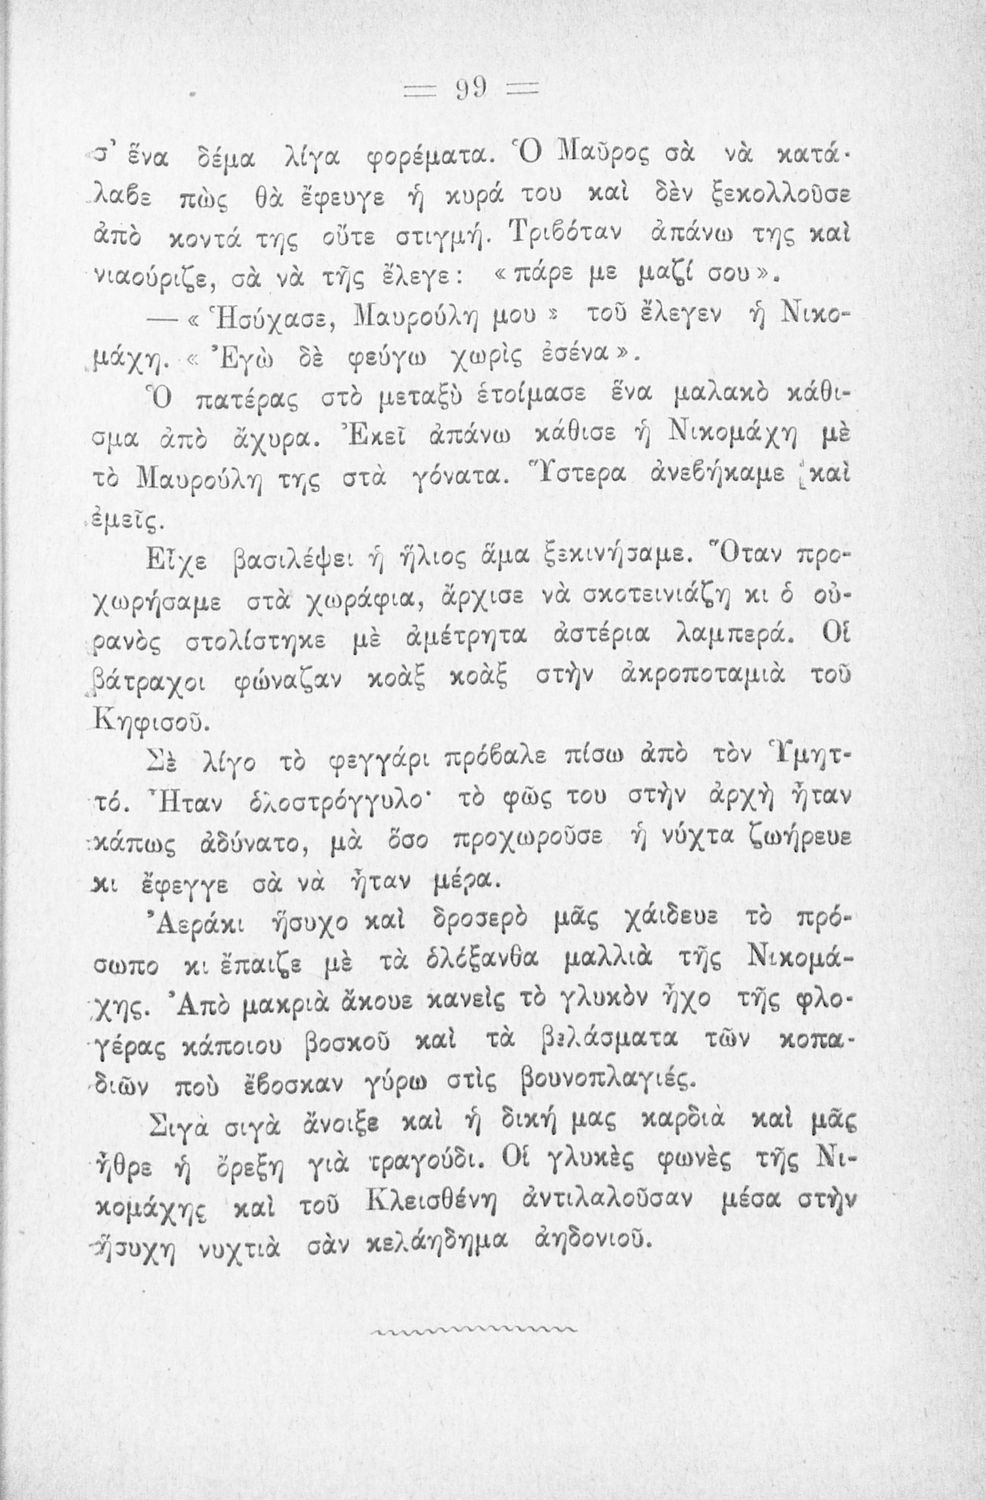 = 99 =
σ' ἕνα δέμα λίγα φορέματα. Ὁ Μαῦρος σὰ νὰ κατά-
λαβε πὼς θὰ ἔφευγε ἡ κυρά του καὶ δὲν ξεκολλοῦσε
ἀπὸ κοντά της οὔτε στιγμή. Τριβόταν ἀπάνω της καὶ
νιαούριζε, σὰ νὰ τῆς ἔλεγε: «πάρε με μαζί σου».
— «Ἡσύχασε, Μαυρούλη μου» τοῦ ἔλεγεν ἡ Νικο-
μάχη. «Ἐγὼ δὲ φεύγω χωρὶς ἐσένα».
Ὁ πατέρας στὸ μεταξὺ ἑτοίμασε ἕνα μαλακὸ κάθι-
σμα ἀπὸ ἄχυρα. Ἐκεῖ ἀπάνω κάθισε ἡ Νικομάχη μὲ
τὸ Μαυρούλη της στὰ γόνατα. Ὕστερα ἀνεβήκαμε καὶ
ἐμεῖς.
Εἶχε βασιλέψει ἡ ἥλιος ἅμα ξεκινήσαμε. Ὅταν προ-
χωρήσαμε στὰ χωράφια, ἄρχισε νὰ σκοτεινιάζῃ κι ὁ οὐ-
ρανὸς στολίστηκε μὲ ἀμέτρητα ἀστέρια λαμπερά. Οἱ
βάτραχοι φώναζαν κοὰξ κοὰξ στὴν ἀκροποταμιὰ τοῦ
Κηφισοῦ.
Σὲ λίγο τὸ φεγγάρι πρόβαλε πίσω ἀπὸ τὸν Ὑμητ-
τό. Ἦταν ὁλοστρόγγυλο· τὸ φῶς του στὴν ἀρχὴ ἦταν
κάπως ἀδύνατο, μὰ ὅσο προχωροῦσε ἡ νύχτα ζωήρευε
κι ἔφεγγε σὰ νὰ ἦταν μέρα.
Ἀεράκι ἥσυχο καὶ δροσερὸ μᾶς χάιδευε τὸ πρό-
σωπο κι ἔπαιζε μὲ τὰ ὁλόξανθα μαλλιὰ τῆς Νικομά-
χης. Ἀπὸ μακριὰ ἄκουε κανεὶς τὸ γλυκὸν ἦχο τῆς φλο-
γέρας κάποιου βοσκοῦ καὶ τὰ βελάσματα τῶν κοπα-
διῶν ποὺ ἔβοσκαν γύρω στὶς βουνοπλαγιές.
Σιγὰ σιγὰ ἄνοιξε καὶ ἡ δική μας καρδιὰ καὶ μᾶς
ἦθρε ἡ ὄρεξη γιὰ τραγούδι. Οἱ γλυκὲς φωνὲς τῆς Νι-
κομάχης καὶ τοῦ Κλεισθένη ἀντιλαλοῦσαν μέσα στὴν
ἥσυχη νυχτιὰ σὰν κελάηδημα ἀηδονιοῦ.